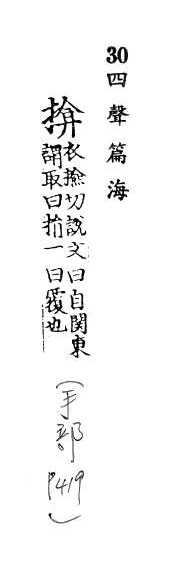 30四聲篇海
揜衣撿切說文曰自関東
謂取曰揜一曰覆也
(手部
P419)